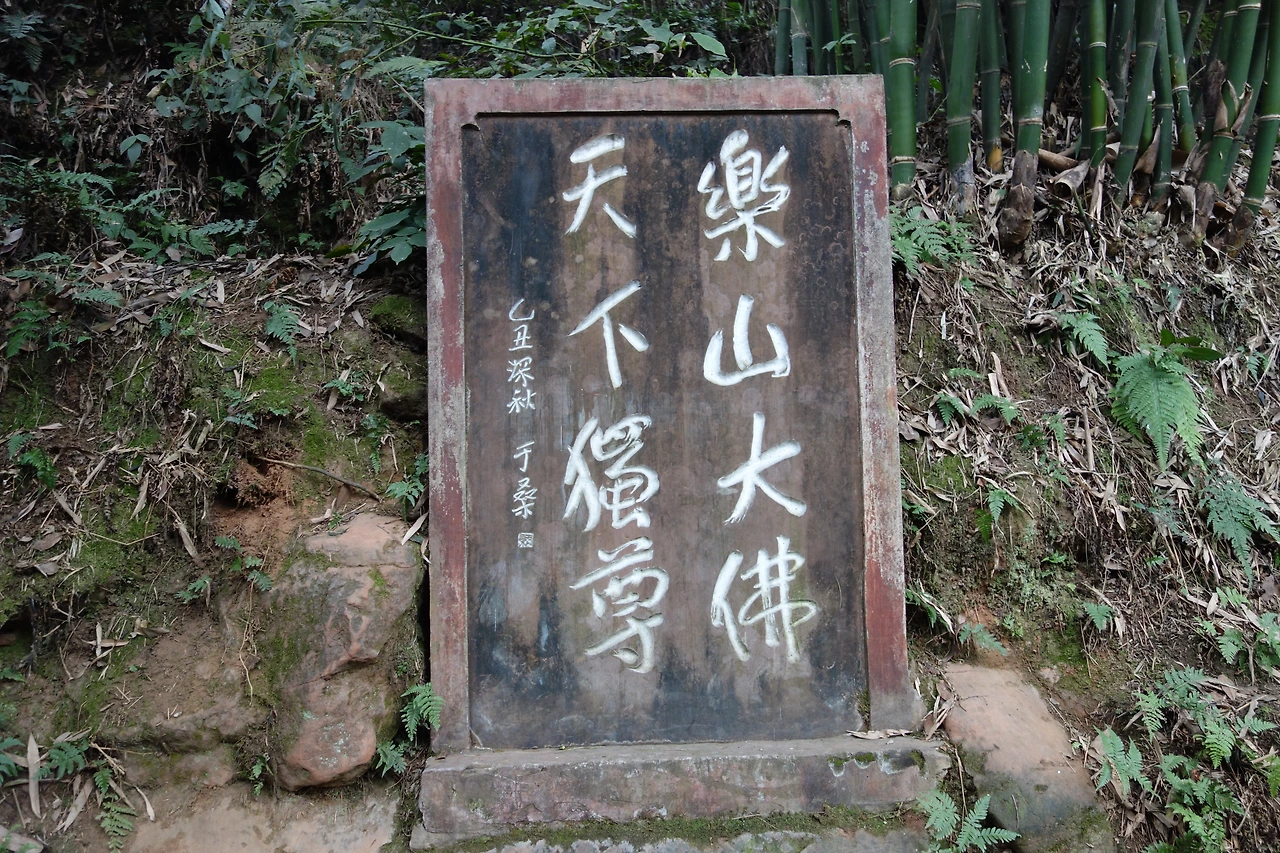 樂山大佛
天下獨尊
乙丑深秋 于桑